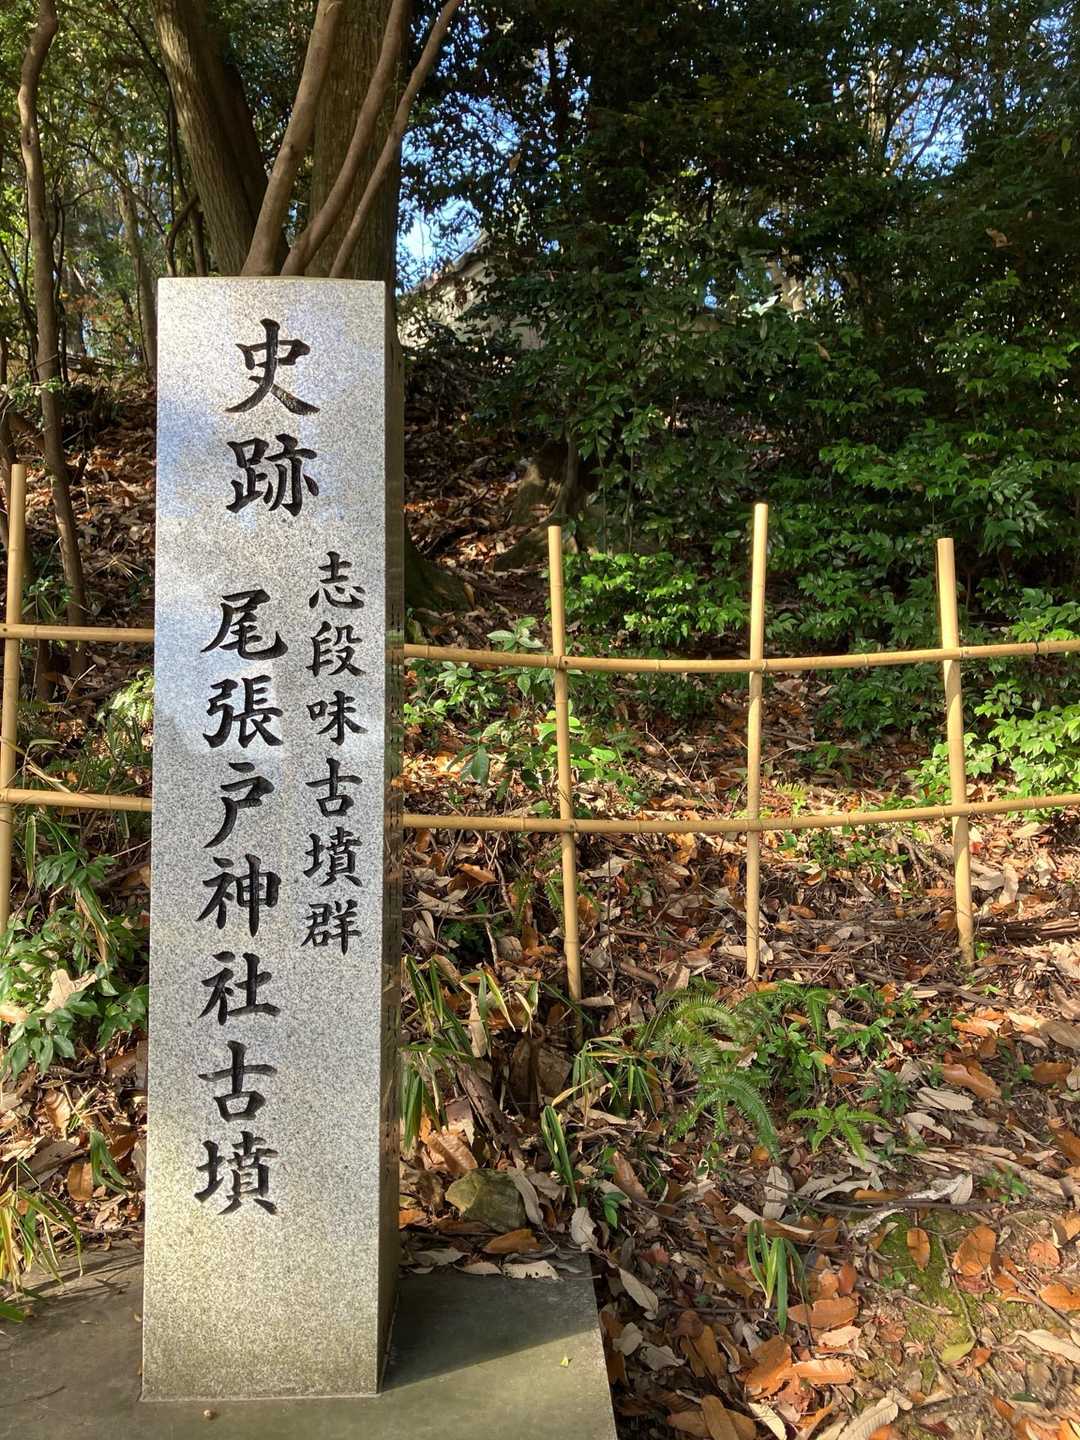 史跡
志段味古墳群
尾張戸神社古墳